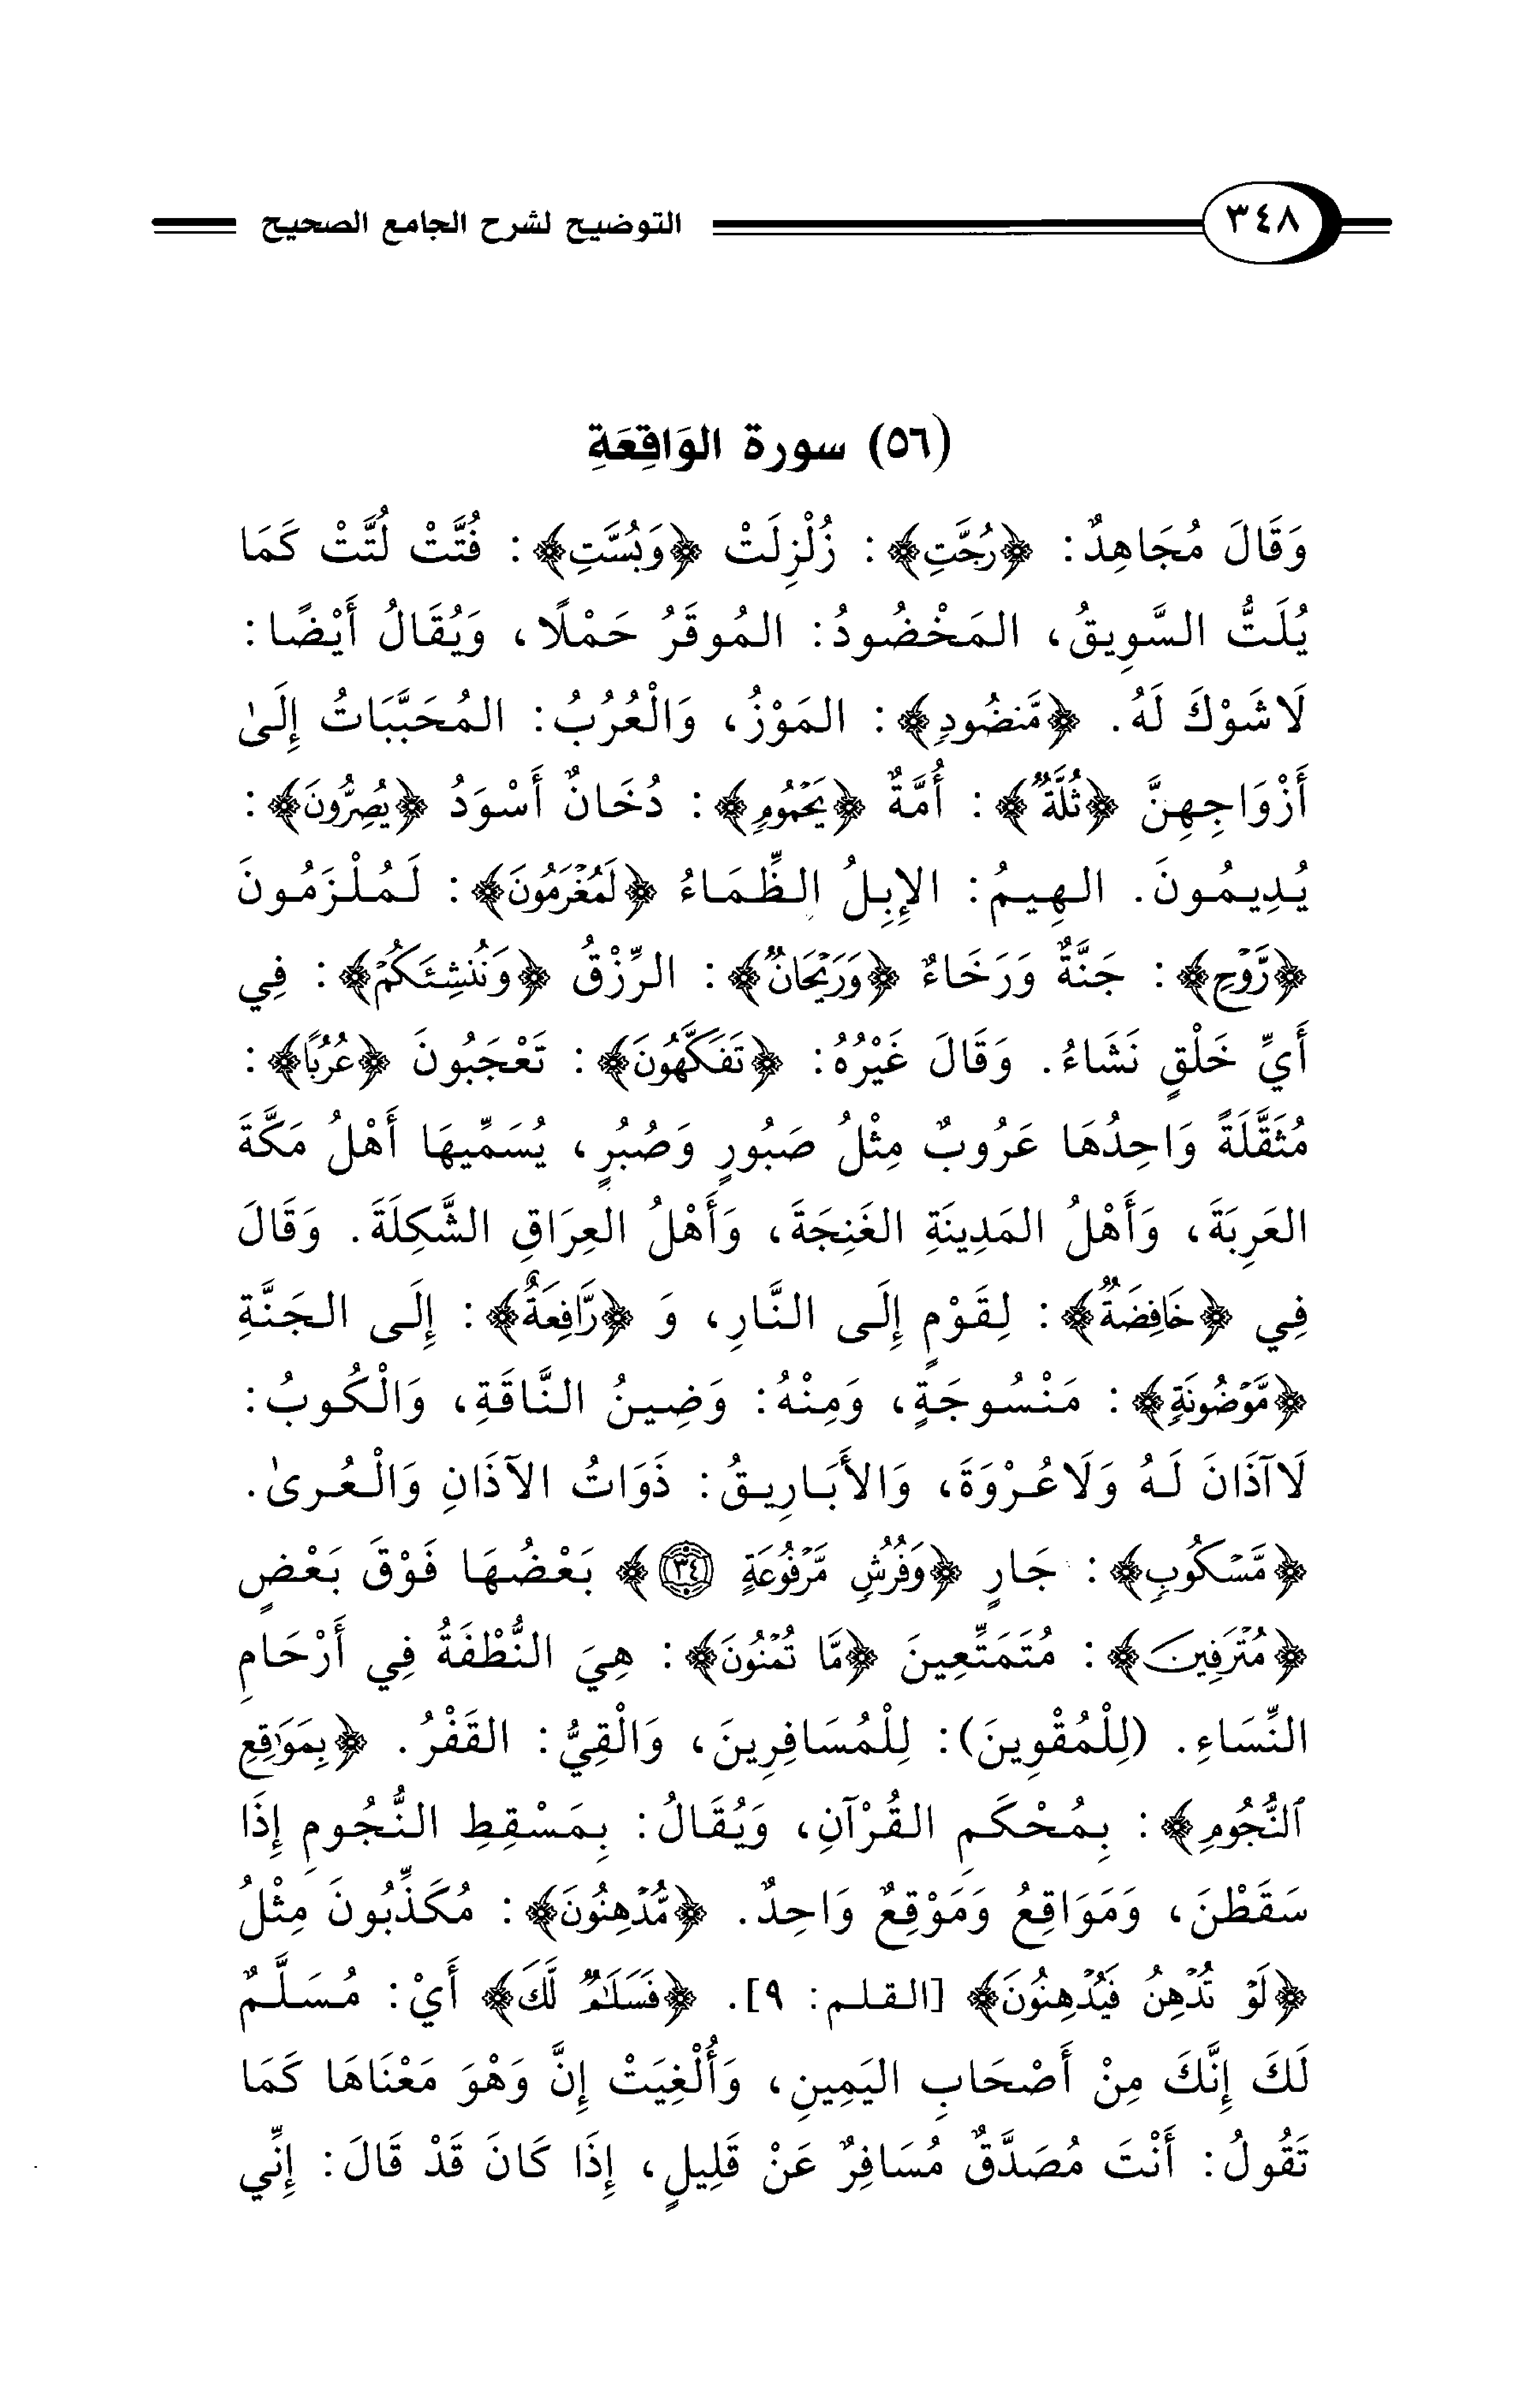 ٣٤٨ التوضيح لشرح الجامع الصحيح
(٥٦) سورة الوَاقِعَةِ
وَقَالَ مُجَاهِدٌ: ﴿رُجَّتِ﴾: زُلْزِلَتْ ﴿وَبُسَّتِ﴾: فُتَّتْ لُتَّتْ كَمَا
يُلَتُّ السَّوِيقُ، المَخْضُودُ: المُوقَرُ حَمْلًا، وَيُقَالُ أَيْضًا:
لَاشَوْكَ لَهُ. ﴿مَّنضُودٍ﴾: المَوْزُ، وَالْعُرُبُ: المُحَبَّبَاتُ إِلَىٰ
أَزْوَاجِهِنَّ ﴿ثُلَّةٌ﴾: أُمَّةٌ ﴿يَحْمُومٍ﴾: دُخَانٌ أَسْوَدُ ﴿يُصِرُّونَ﴾:
يُدِيمُونَ. الهِيمُ: الإِبِلُ الظِّمَاءُ ﴿لَمُغْرَمُونَ﴾: لَمُلْزَمُونَ
﴿رَّوْحٍ﴾: جَنَّةٌ وَرَخَاءٌ ﴿وَرَيْحَانٌ﴾: الرِّزْقُ ﴿وَنُنشِئَكُمْ﴾: فِي
أَيِّ خَلْقٍ نَشَاءُ. وَقَالَ غَيْرُهُ: ﴿تَفَكَّهُونَ﴾: تَعْجَبُونَ ﴿عُرُبًا﴾:
مُثَقَّلَةً وَاحِدُهَا عَرُوبٌ مِثْلُ صَبُورٍ وَصُبُرٍ، يُسَمِّيهَا أَهْلُ مَكَّةَ
العَرِبَةَ، وَأَهْلُ المَدِينَةِ الغَنِجَةَ، وَأَهْلُ العِرَاقِ الشَّكِلَةَ. وَقَالَ
فِي ﴿خَافِضَةٌ﴾: لِقَوْمٍ إِلَى النَّارِ، وَ ﴿رَّافِعَةٌ﴾: إِلَى الجَنَّةِ
﴿مَّوْضُونَةٍ﴾: مَنْسُوجَةٍ، وَمِنْهُ: وَضِينُ النَّاقَةِ، وَالْكُوبُ:
لَاآذَانَ لَهُ وَلَاعُرْوَةَ، وَالأَبَارِيقُ: ذَوَاتُ الآذَانِ وَالْعُرىٰ.
﴿مَّسْكُوبٍ﴾: جَارٍ ﴿وَفُرُشٍ مَّرْفُوعَةٍ ٣٤﴾ بَعْضُهَا فَوْقَ بَعْضٍ
﴿مُتْرَفِينَ﴾: مُتَمَتِّعِينَ ﴿مَّا تُمْنُونَ﴾: هِيَ النُّطْفَةُ فِي أَرْحَامِ
النِّسَاءِ. (لِلْمُقْوِينَ): لِلْمُسَافِرِينَ، وَالْقِيُّ: القَفْرُ. ﴿بِمَوَٰقِعِ
ٱلنُّجُومِ﴾: بِمُحْكَمِ القُرْآنِ، وَيُقَالُ: بِمَسْقِطِ النُّجُومِ إِذَا
سَقَطْنَ، وَمَوَاقِعُ وَمَوْقِعٌ وَاحِدٌ. ﴿مُّدْهِنُونَ﴾: مُكَذِّبُونَ مِثْلُ
﴿لَوْ تُدْهِنُ فَيُدْهِنُونَ﴾ [القلم: ٩]. ﴿فَسَلَٰمٌ لَّكَ﴾ أَيْ: مُسَلَّمٌ
لَكَ إِنَّكَ مِنْ أَصْحَابِ اليَمِينِ، وَأُلْغِيَتْ إِنَّ وَهْوَ مَعْنَاهَا كَمَا
تَقُولُ: أَنْتَ مُصَدَّقٌ مُسَافِرٌ عَنْ قَلِيلٍ، إِذَا كَانَ قَدْ قَالَ: إِنِّي